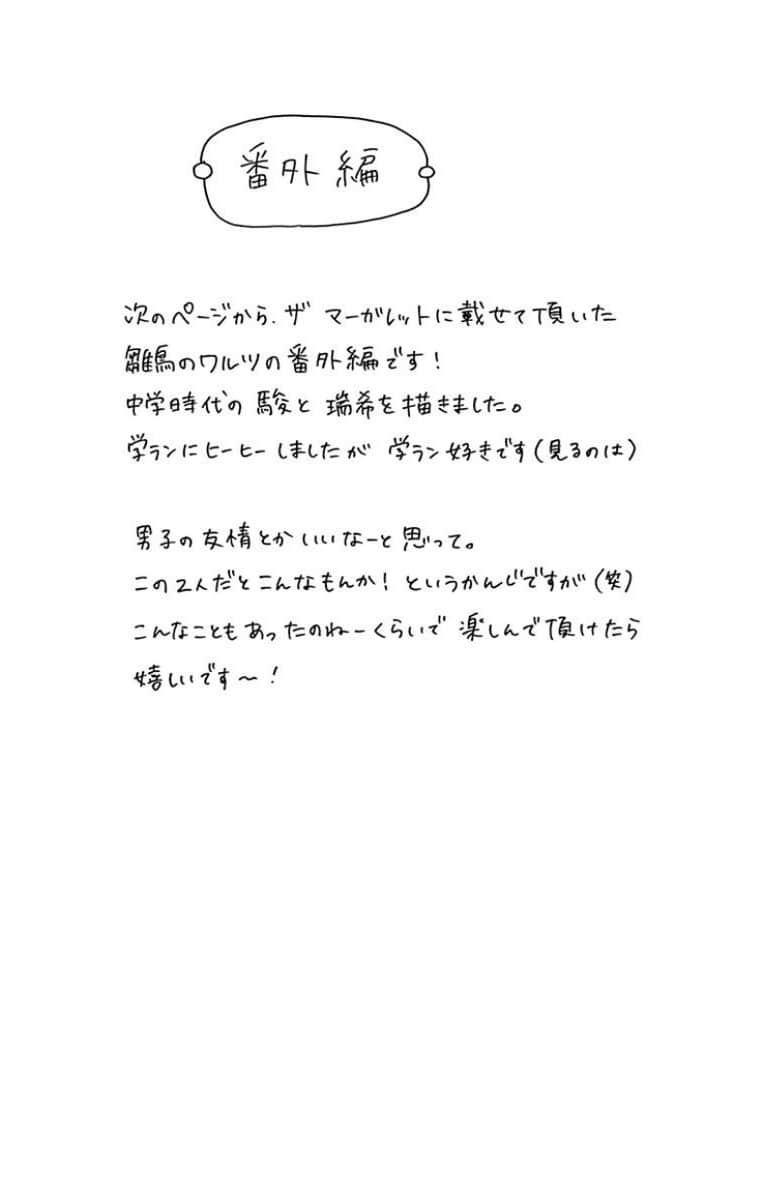 番外編
次のページから、ザ マーガレットに載せて頂いた
雛鳥のワルツの番外編です!
中学時代の駿と瑞希を描きました。
学ランにヒーヒーしましたが 学ラン好きです(見るのは)
男子の友情とかいいなーと思って。
この2人だとこんなもんか! というかんじですが(笑)
こんなこともあったのねーくらいで楽しんで頂けたら
嬉しいです〜!